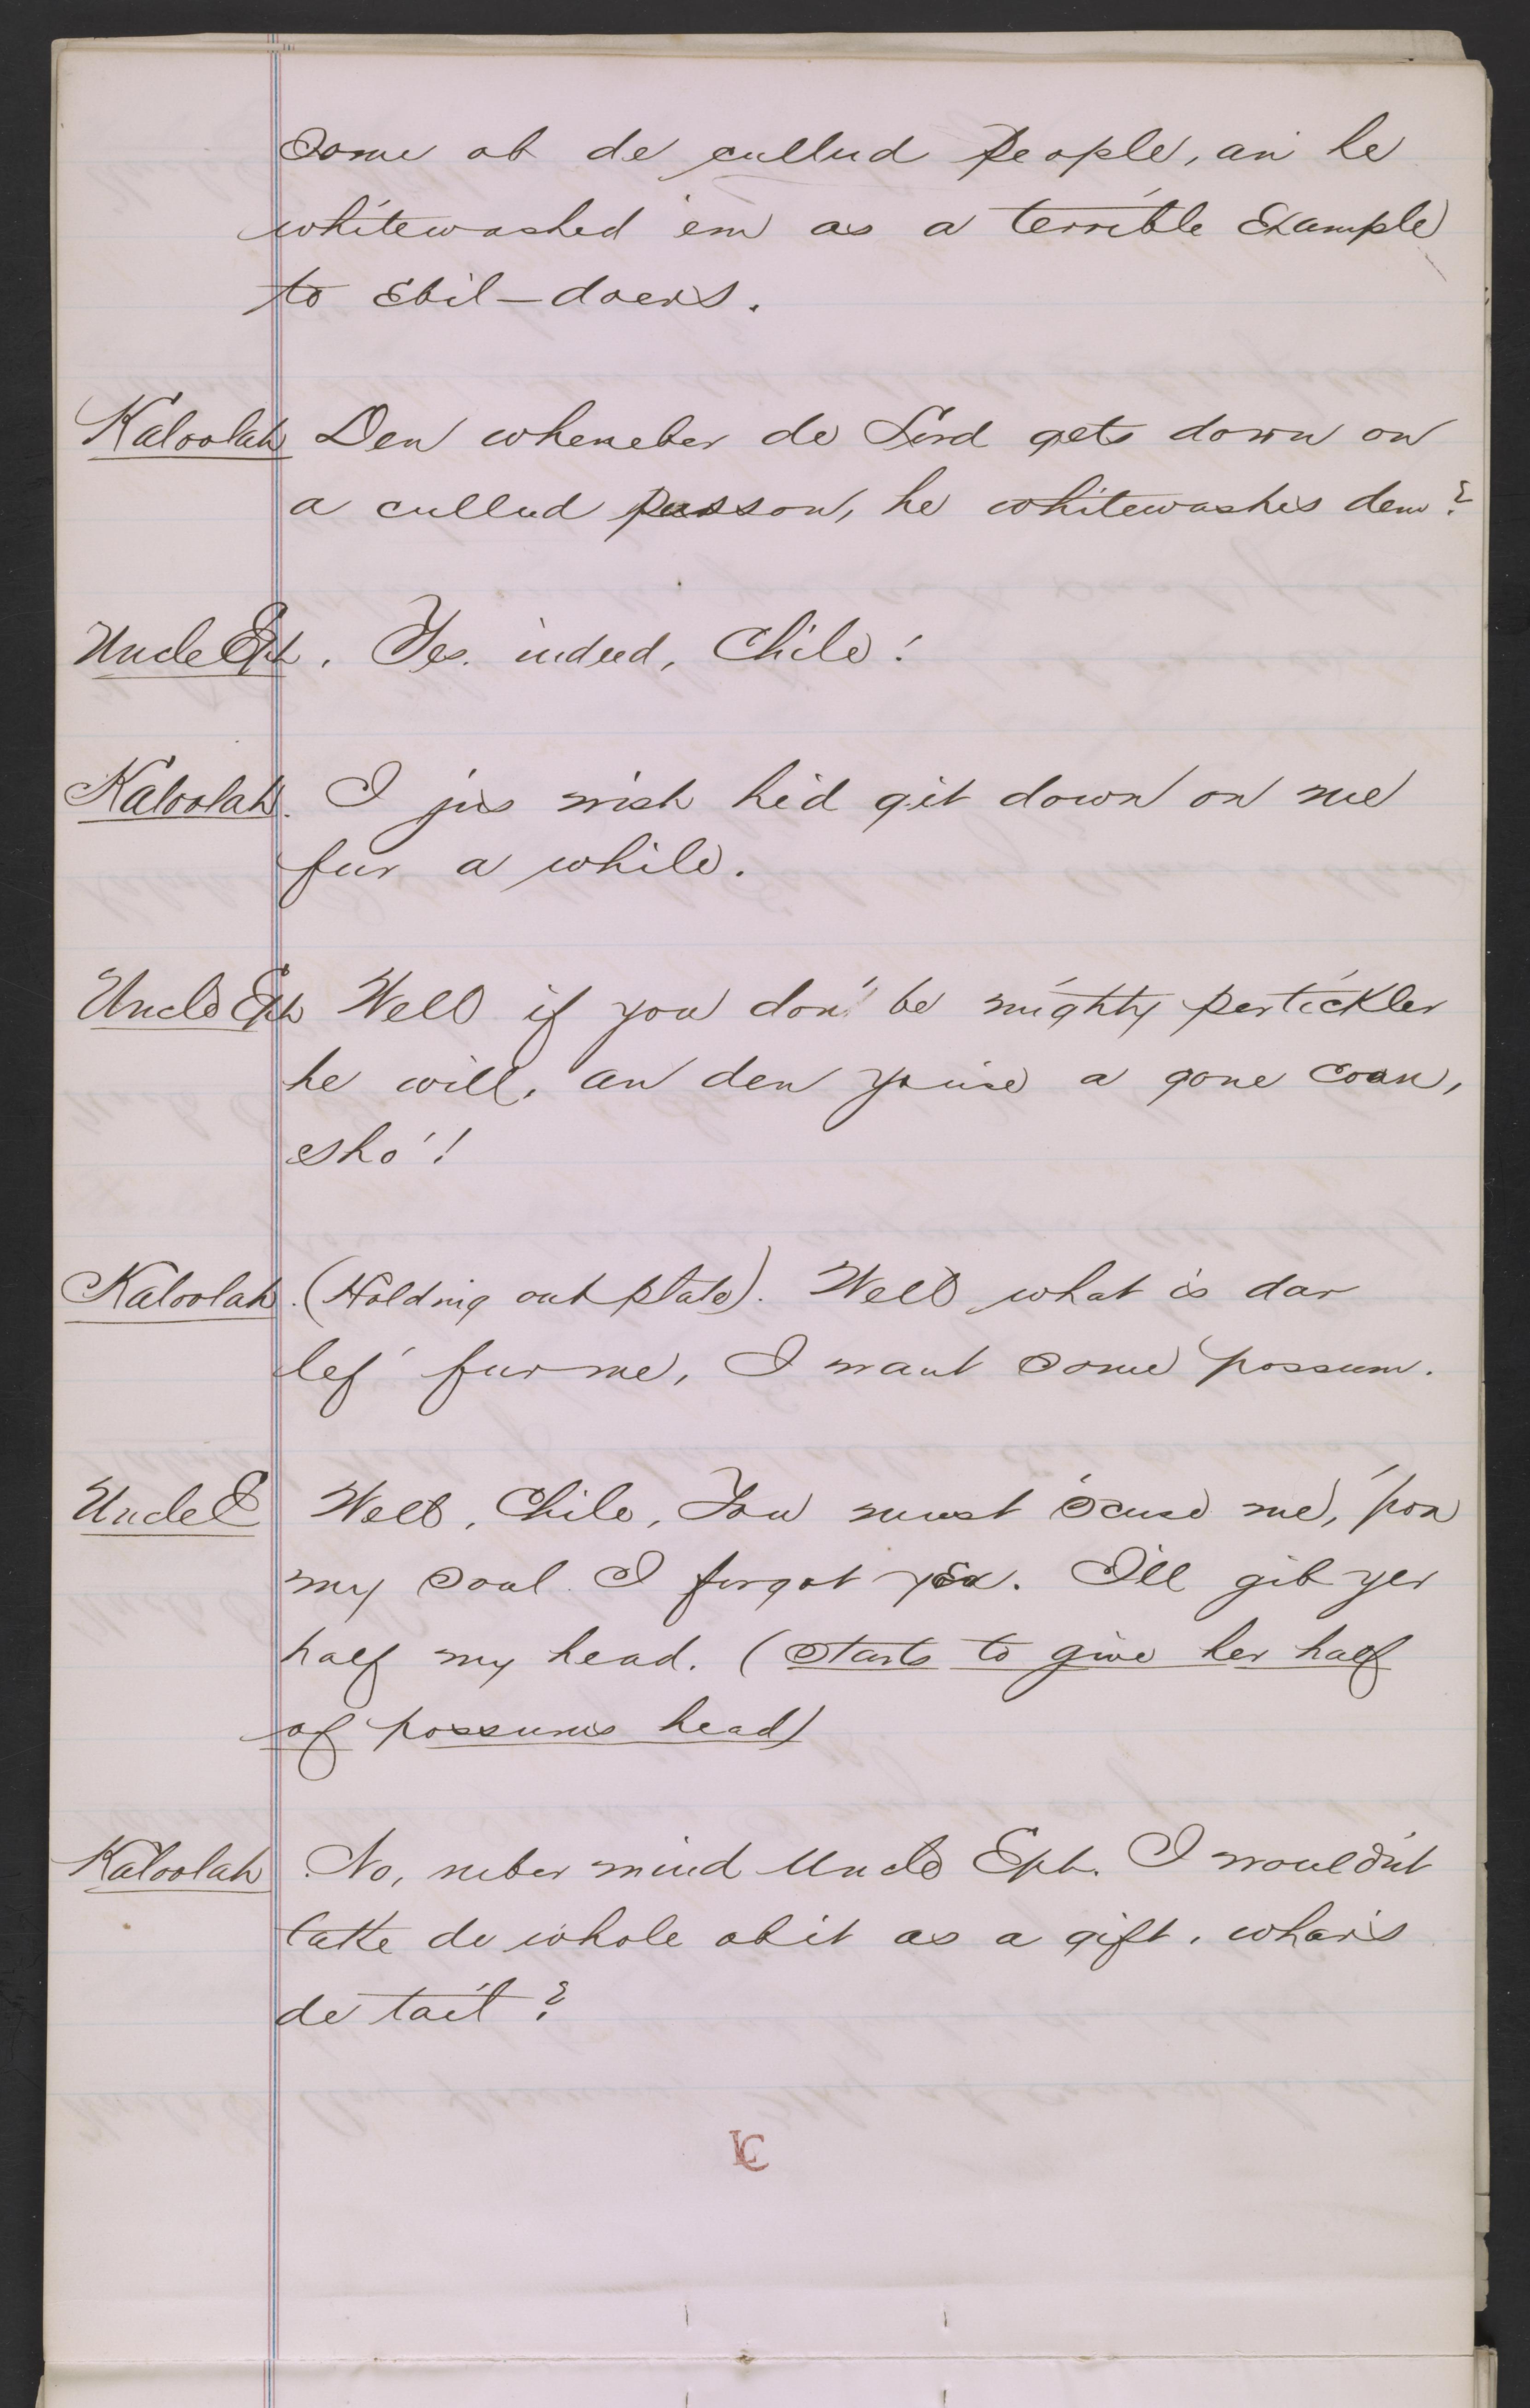 some ob de cullud People, an' he
whitewashed 'em as a terrible Example
to Ebil-doers.
Kaloolah Den wheneber de Lord gets down on
a cullud passon, he whitewashes dem?
Uncle Eph. Yes. indeed, Chile!
Kaloolah. I jus wish he'd git down on me
fur a while.
Uncle Eph Well if you don't be mighty pertickler
he will, an den youse a gone coon,
sho'!
Kaloolah. (Holding out plate). Well what is dar
lef' fur me, I want some possum.
Uncle E Well, Chile, You must 'scuse me, 'pon
my soul I forgot you. I'll gib yer
half my head. (Starts to give her half
of possums head)
Kaloolah No, neber mind Uncle Eph. I wouldn't
take de whole ob it as a gift. whar's
de tail?
LC